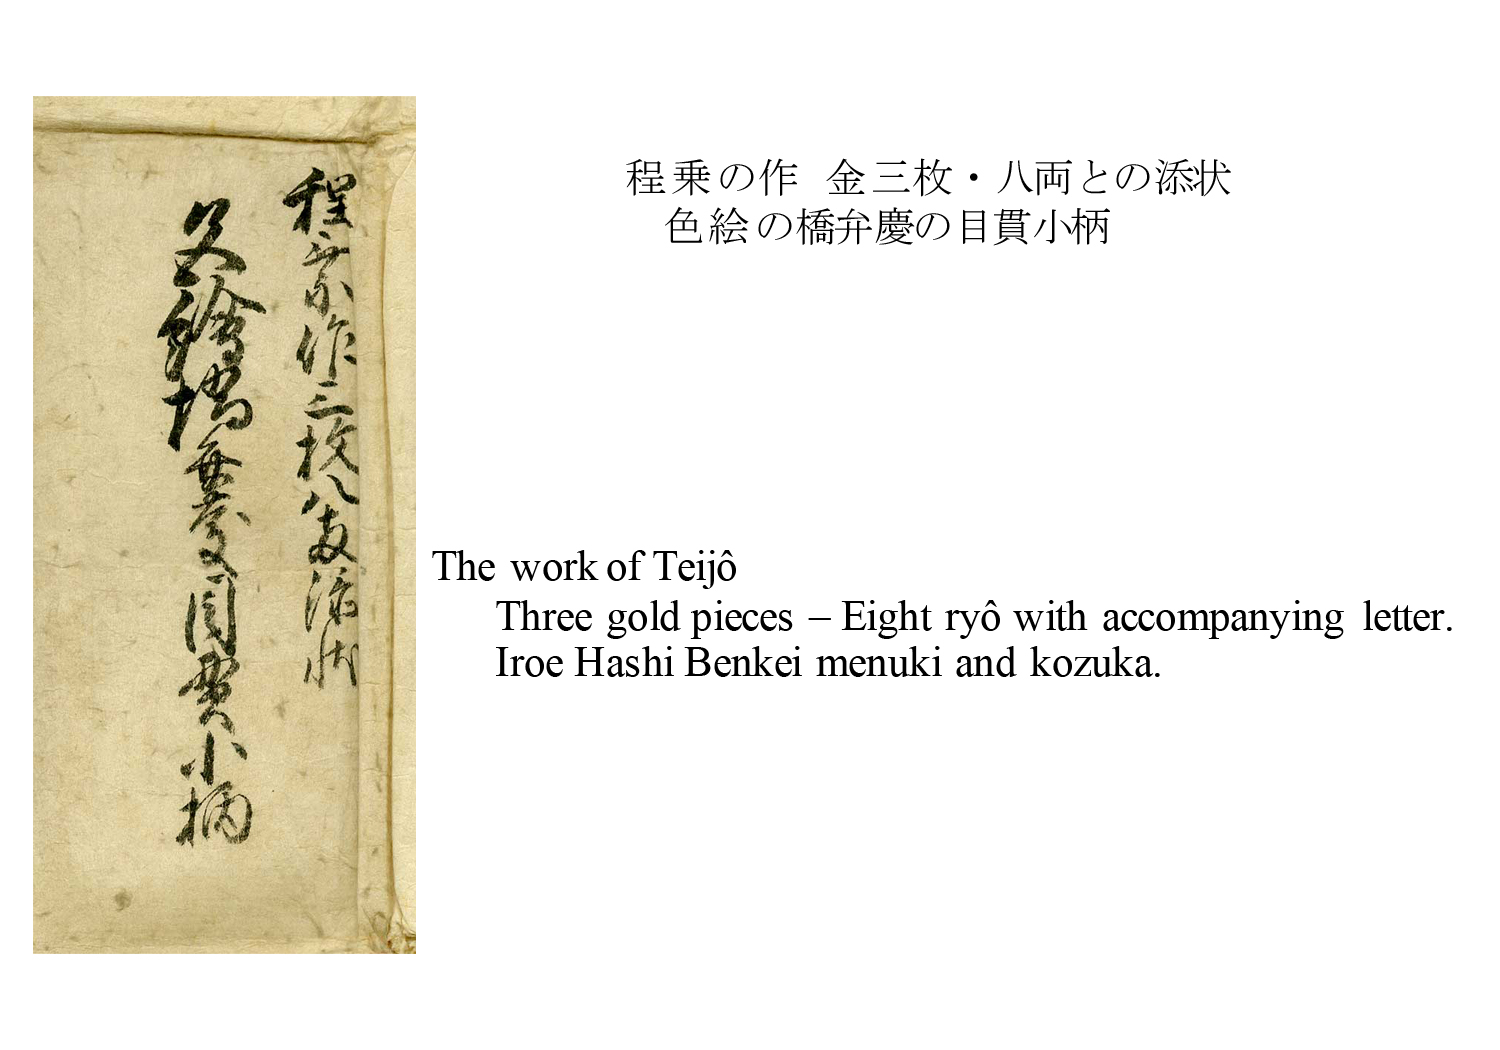 程乗作三枚八両添状
色絵橋弁慶目貫小柄
程乗の作 金三枚・八両との添状
色絵の橋弁慶の目貫小柄
The work of Teijô
Three gold pieces – Eight ryô with accompanying letter.
Iroe Hashi Benkei menuki and kozuka.